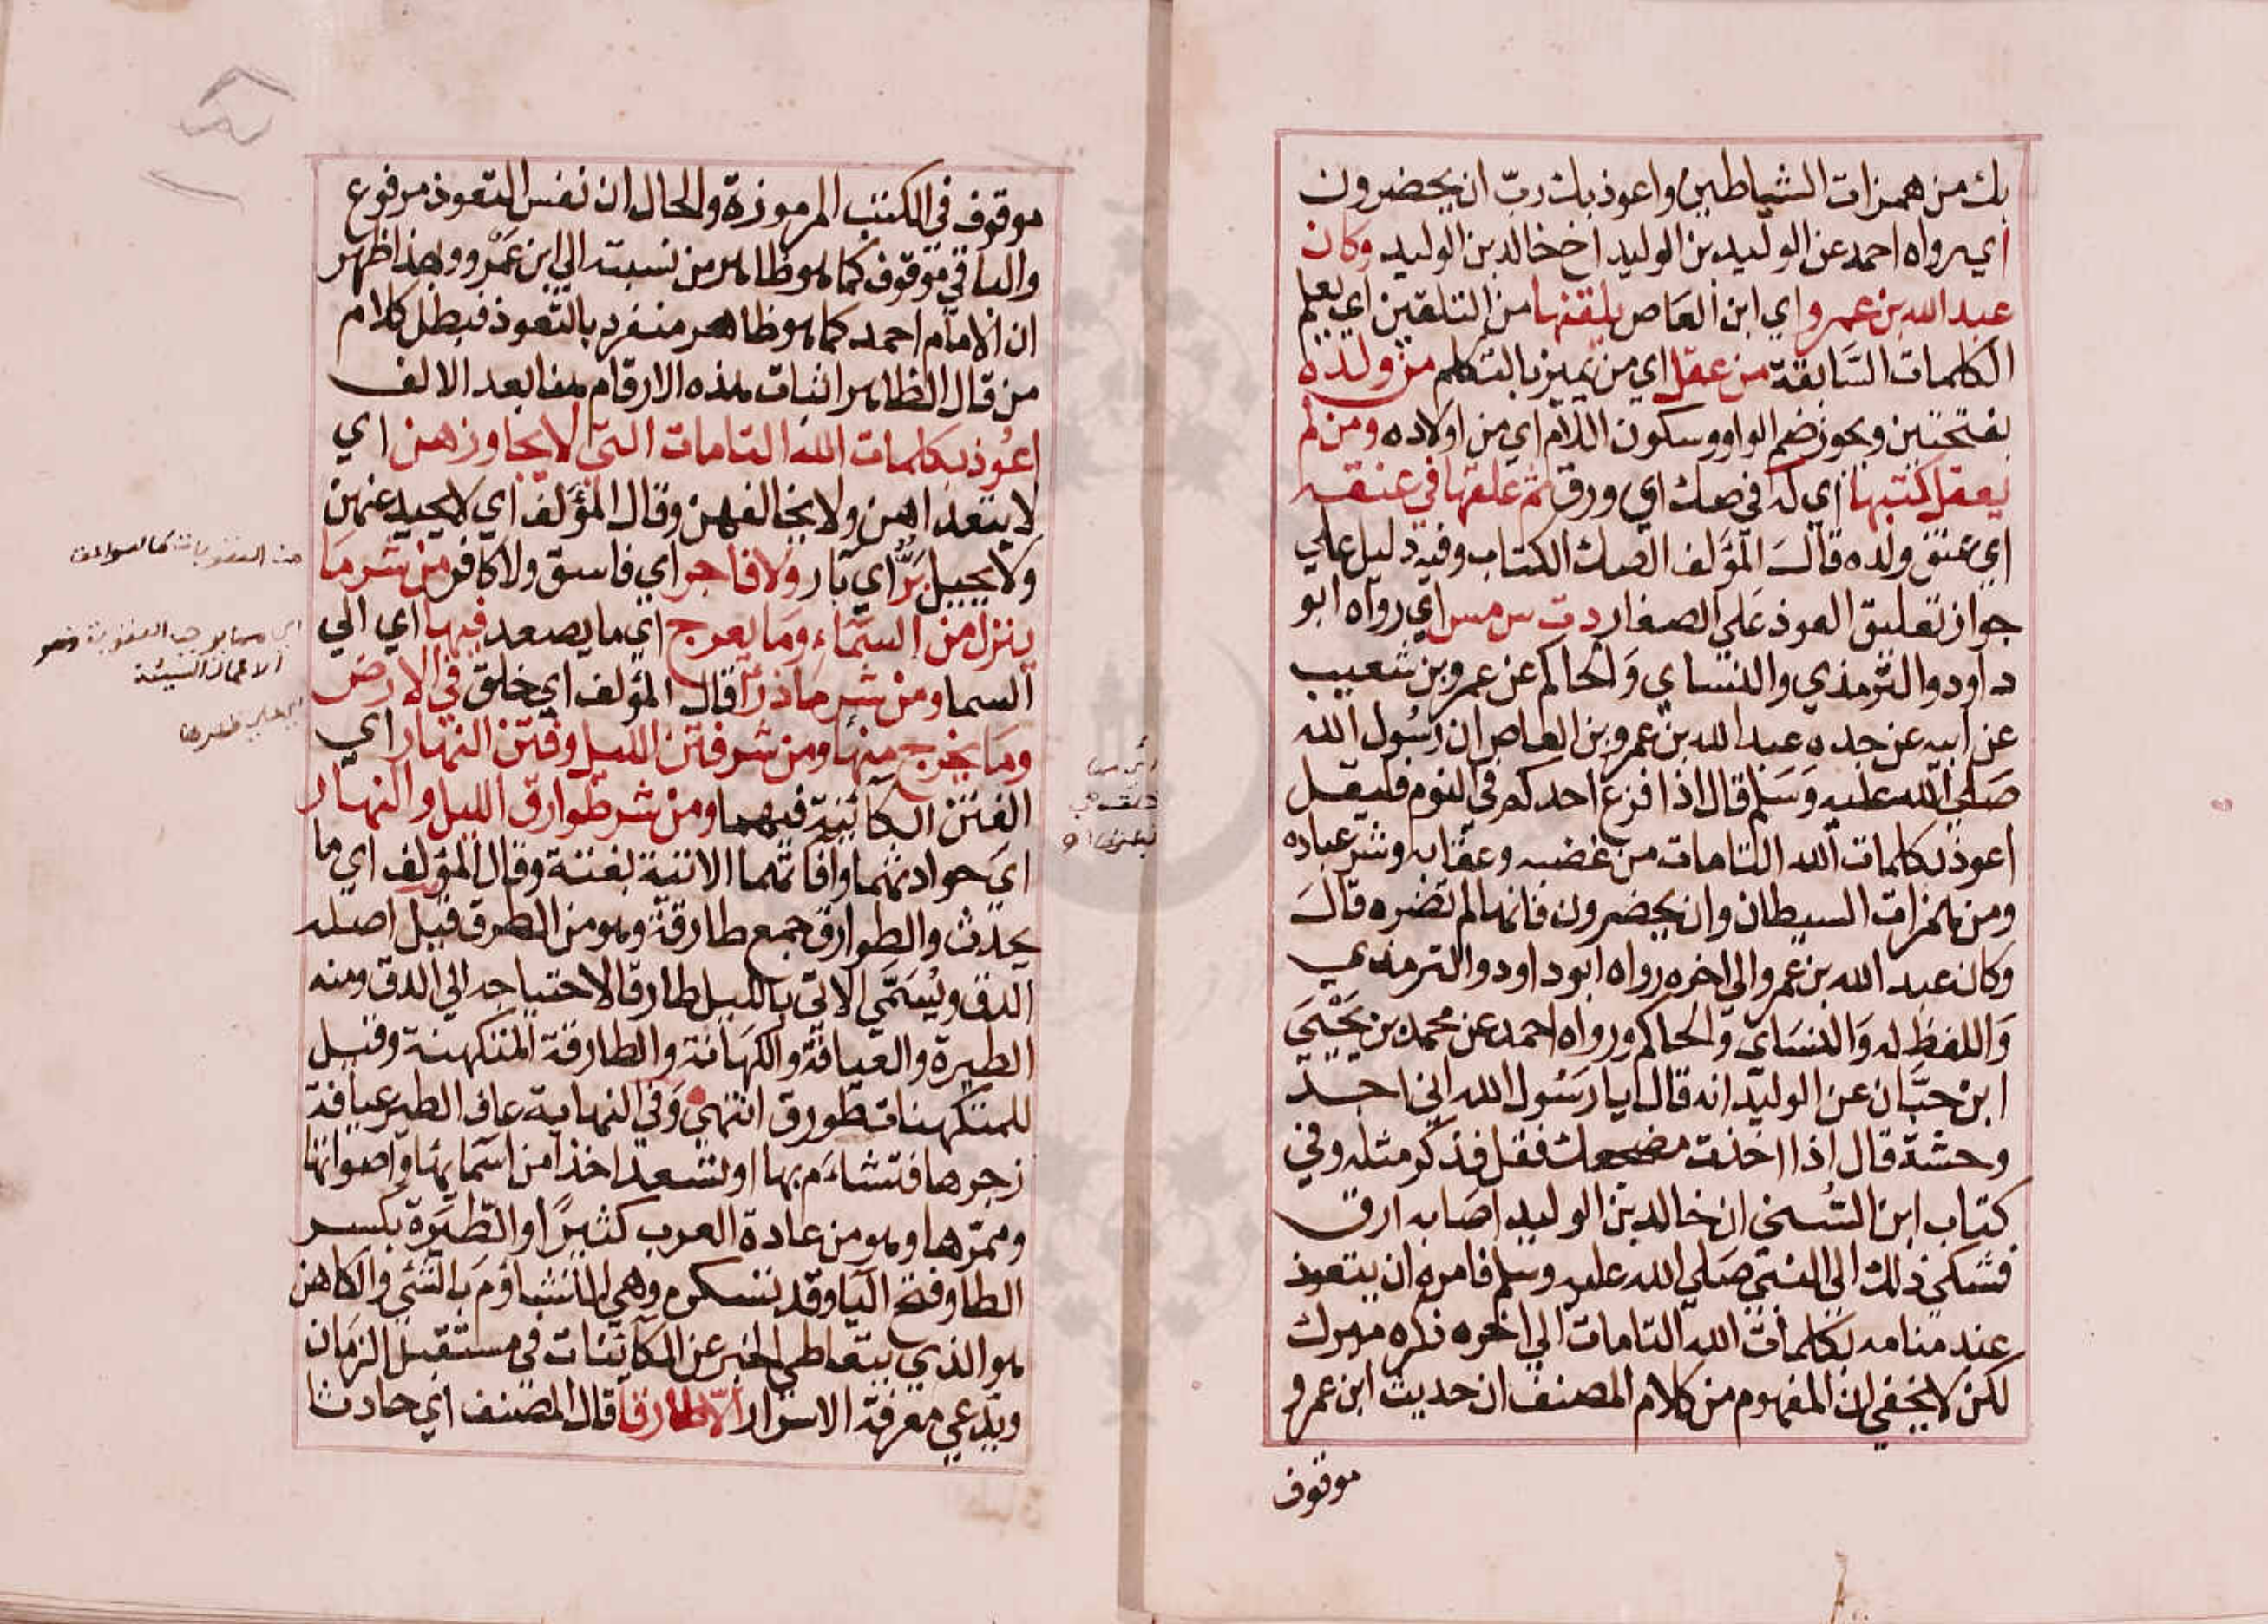 بك من همزات الشياطين واعوذ بك ربّ ان يحضرون
اي رواه احمد عن الوليد بن الوليد اخ خالد بن الوليد وكان
عبد الله بن عمرو اي ابن العاص يلقنها من التلقين اي يعلم
الكلمات السَّابقة من عقل اي من يميز بالتكلم من ولده
بفتحتين ويجوز ضم الواو وسكون اللام اي من اولاده ومن لم
يعقل كتبها اي له في صك اي ورق ثم علقها في عنقه
اي عنق ولده قالَ المؤلف الصك الكتاب وفيه دليل علي
جواز تعليق العوذ عَلي الصغار دت س مس اي رواه ابو
داود والترمذي والنساي وَالحاكم عن عمرو بن شعيب
عن ابيه عن جده عبد الله بن عمرو بن العاص ان رسُول الله
صَلي الله عليه وَسَلم قال اذا فزع احدكم في النوم فليقل
اعوذ بكلمات الله التامات من غضبه وعقابه وشر عباده
ومن همزات السيطان وان يحضرون فانها لم تضره قالَ
وكان عبد الله بن عمرو الي اخره رواه ابو داود والترمذي
وَاللفظ له وَالنسَاي وَالحاكم ورواه احمد عن محمد بن يَحْيَي
ابن حبَّان عن الوليد انه قال يا رسُول الله اني اجد
وحشة قال اذا اخذت مضجعك فقل فذكر مثله وفي
كتاب ابن السُني ان خالد بن الوليد اصَابه ارق
فشكي ذلك الي النبي صَلي الله عليه وسلم فامره ان يتعوذ
عند منامه بكلمات الله التامات الي اخره ذكره ميرك
لكن لا يخفي ان المفهوم من كلام المصنف ان حديث ابن عمرو
موقوف
موقوف في الكتب المرموزة والحال ان نفس التعوذ مرفوع
والباقي موقوف كما هو ظاهر من نسبته الي ابن عَمْرو وبهذا ظهر
ان الامام احمد كما هو ظاهر منفرد بالتعوذ فبطل كلام
من قال الظاهر اثبات هذه الارقام هنا بعد الالف
اعوُذ بكلمات الله التامات التي لا يجاوزهن اي
لا يتعداهن ولا يخالفهن وقال المؤلف اي لا يحيد عنهن
ولا يميل بَرٌّ اي بَار ولا فاجر اي فاسق ولا كافر من شر ما
ينزل من السَّماء وما يعرج اي ما يصعد فيها اي الي
السما ومن شر ما ذرأ قال المؤلف اي خلق في الارض
وما يخرج منها ومن شر فتن الليل وفتن النهار اي
الفتن الكائنة فيهما ومن شر طوارق الليل والنهار
اي حوادثهما وافاتهما الاتية بغتة وقال المؤلف اي ما
يحدث والطوارق جمع طارقة وهو من الطرق قيل اصله
الدق ويُسَمَّي الاتي بالليل طارقا لاحتياجه الي الدق ومنه
الطيرة والعيافة والكهَانة والطارقة المتكهنة وقيل
للمتكهنات طوارق انتهي وفي النهاية عاف الطير عيافة
زجرها فتشاءَم بها او تسعد اخذا من اسَمايها وَاصواتها
وممرّها وهو من عادة العرب كثيرًا والطّيَرة بكسر
الطا وفتح اليا وقد تسكن وهي التشاؤم بالشئي والكاهن
هو الذي يتعاطي الخبر عن الكائنات في مستقبل الزمان
ويدعي معرفة الاسرار الّا طارقا قال المصنف اي حادثا
من العقوبات كالصواعق
اي مما يوجب العقوبة وهو
الاعمال السيئة